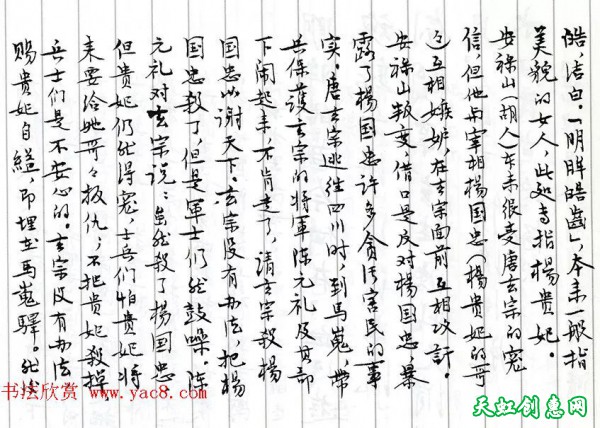 皓,洁白。「明眸皓齒」,本来一般指
美貌的女人,此处专指楊貴妃。
安祿山(胡人)本来很受唐玄宗的宠
信,但他与宰相楊国忠(楊貴妃的哥
々)互相嫉妒,在玄宗面前互相攻訐。
安祿山叛变,借口是反对楊国忠,暴
露了楊国忠许多贪污害民的事
实。唐玄宗逃往四川时,到馬嵬,带
兵保護玄宗的将軍陈元礼及其部
下闹起来,不肯走了,请玄宗殺楊
国忠以谢天下。玄宗没有办法,把楊
国忠殺了,但是軍士们仍鼓噪。陈
元礼对玄宗说:虽然殺了楊国忠
但貴妃仍然得宠,士兵们怕貴妃将
来要给她哥々报仇,不把貴妃殺掉,
兵士们是不安心的。玄宗没有办法
赐貴妃自縊,即埋在馬嵬驿。
书法欣赏 www.yac8.com
天虹创意网